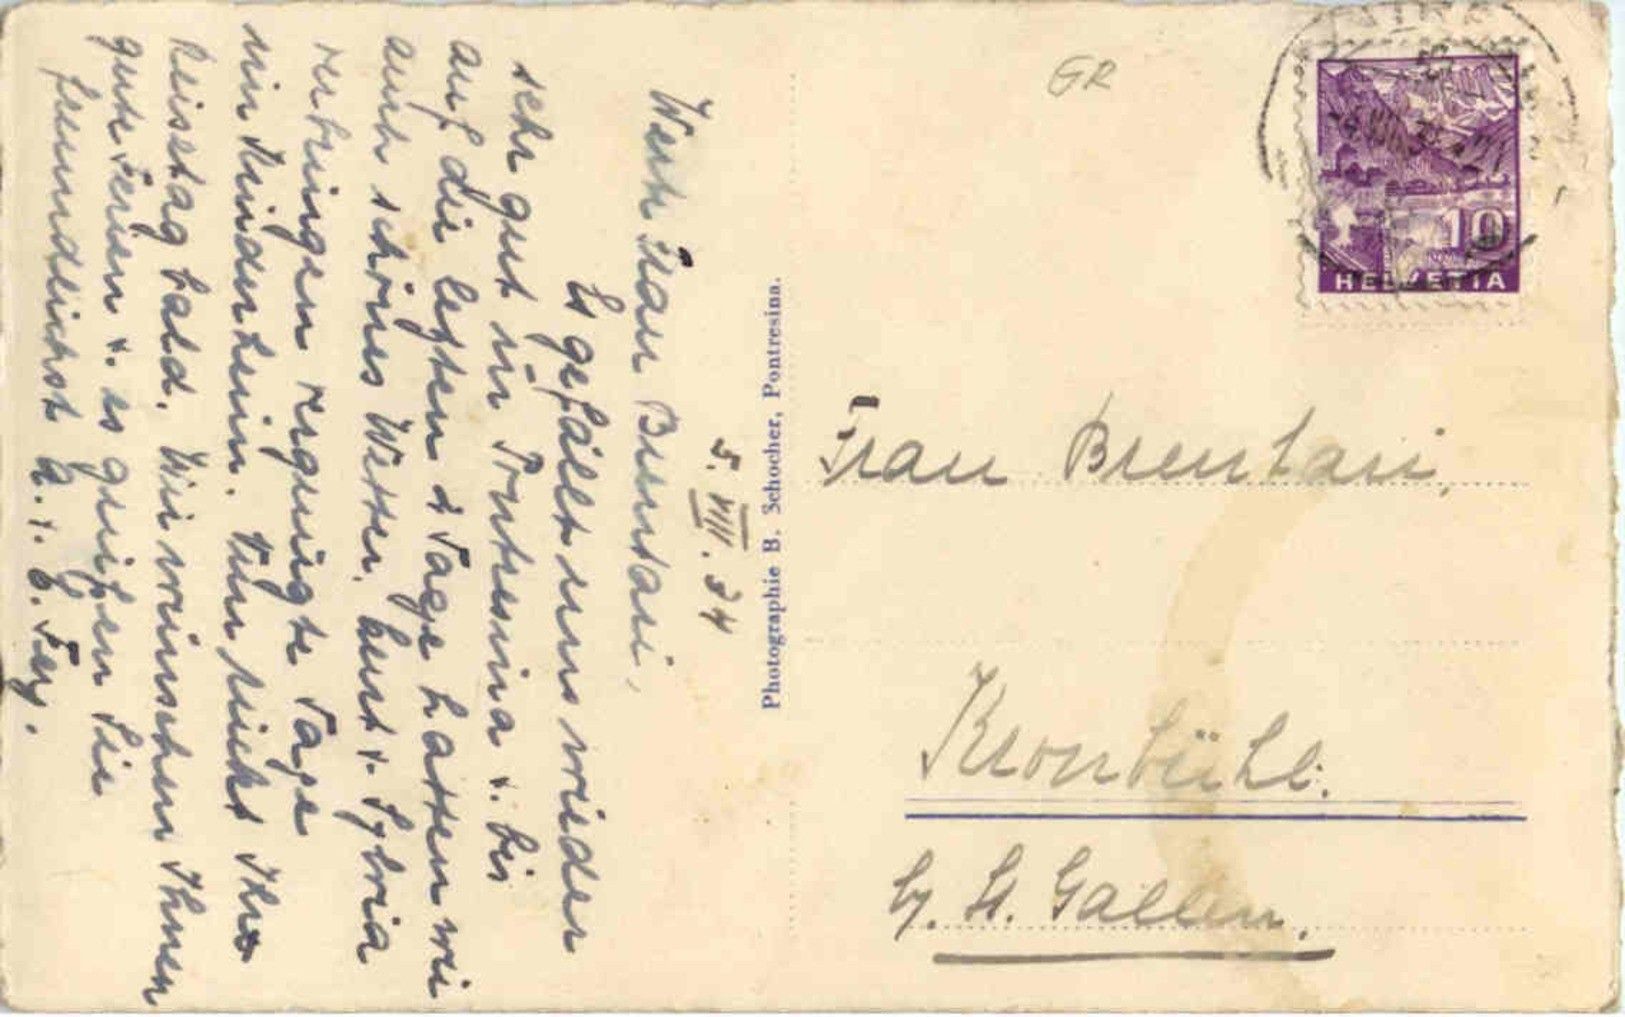 5. VIII. 34
Werte Frau Brentari,
Es gefällt uns wieder
sehr gut in Pontresina u. bis
auf die letzten 2 Tage hatten wir
auch schönes Wetter. Kurt u. Sylvia
verbringen vergnügte Tage
im Kinderheim. Nun rückt Ihr
Reisetag bald. Wir wünschen Ihnen
gute Ferien u. es grüßen Sie
freundlichst
Photographie B. Schocher, Pontresina.
GR
10
HELVETIA
Frau Brentari,
Kronbühl.
b/. St. Gallen.